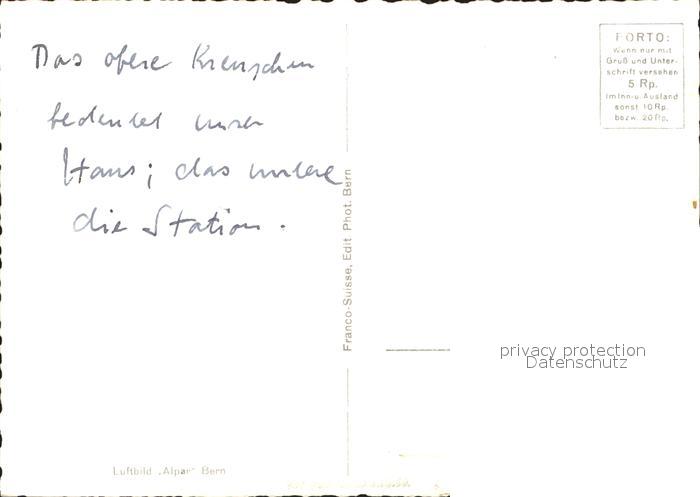 Das obere Kreuzchen
bedeutet unser
Haus; das untere
die Station.
Franco-Suisse, Edit. Phot. Bern
PORTO:
Wenn nur mit
Gruß und Unter-
schrift versehen
5 Rp.
im Inn- u. Ausland
sonst 10 Rp.
bezw. 20 Rp.
privacy protection
Datenschutz
Luftbild „Alpar" Bern